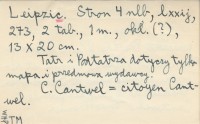 Leipzig. Stron 4 nlb, lxxij,
273, 2 tab., 1 m., okł. (?),
13 x 20 cm.
Tatr i Podtatrza dotyczy tylko
mapa i przedmowa wydawcy.
C. Cantwel = citoyen Cant-
wel.
TM